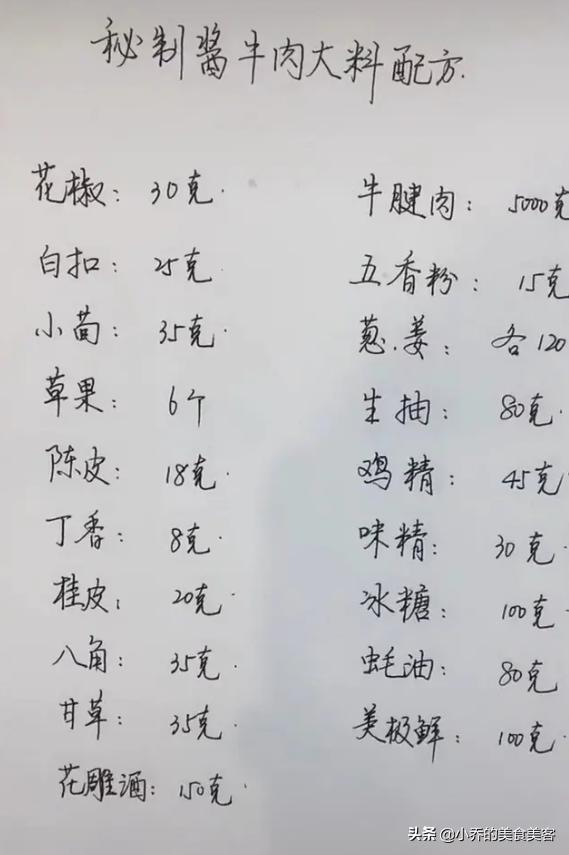 秘制酱牛肉大料配方.
花椒: 30克.
白扣: 25克
小茴: 35克.
草果: 6个
陈皮: 18克.
丁香: 8克.
桂皮: 20克.
八角: 35克.
甘草: 35克.
花雕酒: 150克.
牛腱肉: 5000克
五香粉: 15克
葱.姜: 各120
生抽: 80克.
鸡精: 45克
味精: 30克.
冰糖: 100克
蚝油: 80克
美极鲜: 100克.
头条 @小乔的美食美客